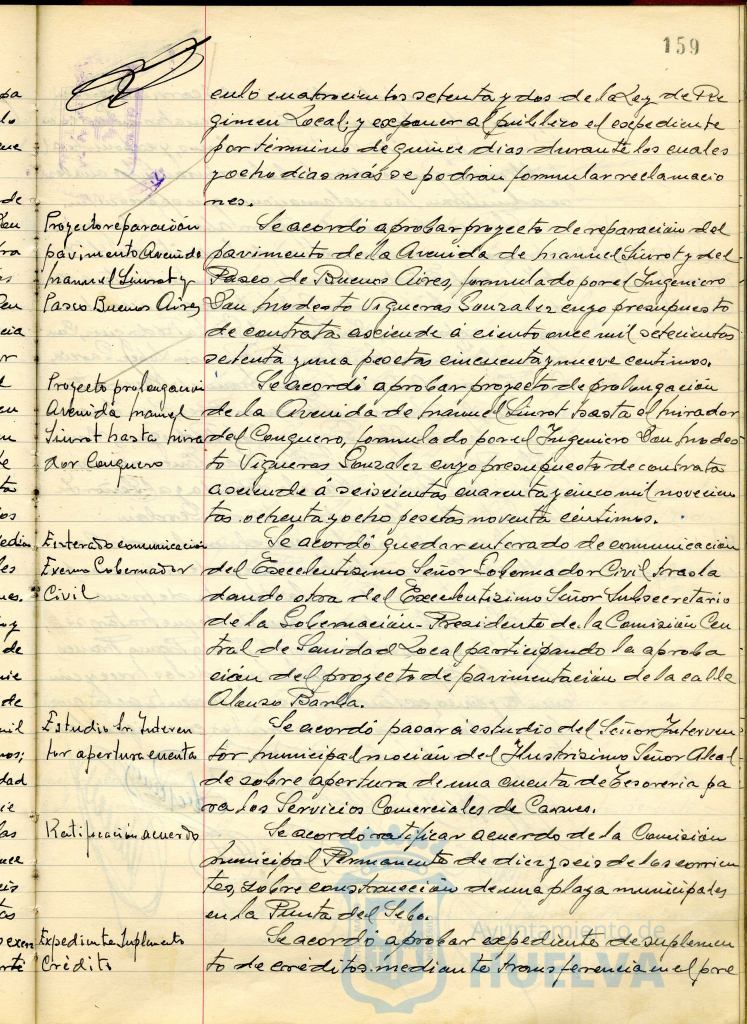 159
culo cuatrocientos setenta y dos de la Ley de Re
gimen Local; y exponer al público el expediente
por término de quince dias durante los cuales
y ocho dias más se podran formular reclamacio
nes.
Proyecto reparación
pavimento Avenida
Manuel Siurot y
Paseo Buenos Aires
Se acordó aprobar proyecto de reparación del
pavimento de la Avenida de Manuel Siurot y del
Paseo de Buenos Aires, formulado por el Ingeniero
Don Modesto Vigueras Gonzalez cuyo presupuesto
de contrata asciende á ciento once mil setecientas
setenta y una pesetas cincuenta y nueve centimos.
Proyecto prolongación
Avenida Manuel
Siurot hasta mira
dor Conquero
Se acordó aprobar proyecto de prolongación
de la Avenida de Manuel Siurot hasta el mirador
del Conquero, formulado por el Ingeniero Don Modes
to Vigueras Gonzalez cuyo presupuesto de contrata
asciende á seiscientas cuarenta y cinco mil novecien
tas ochenta y ocho pesetas noventa céntimos.
Enterado comunicación
Excmo Gobernador
Civil
Se acordó quedar enterado de comunicación
del Excelentísimo Señor Gobernador Civil trasla
dando otra del Excelentísimo Señor Subsecretario
de la Gobernación-Presidente de la Comisión Cen
tral de Sanidad Local participando la aproba
ción del proyecto de pavimentación de la calle
Alonso Barba.
Estudio Sr. Interven
tor apertura cuenta
Se acordó pasar á estudio del Señor Interven
tor municipal moción del Ilustrísimo Señor Alcal
de sobre apertura de una cuenta de Tesoreria pa
ra los Servicios Comerciales de Carnes.
Ratificación acuerdo
Se acordó ratificar acuerdo de la Comisión
Municipal Permanente de diez y seis de los corrien
tes, sobre construcción de una playa municipal
en la Punta del Sebo.
Expediente Suplemento
Crédito
Se acordó aprobar expediente de suplemen
to de créditos mediante transferencia en el pre
Ayuntamiento de
HUELVA